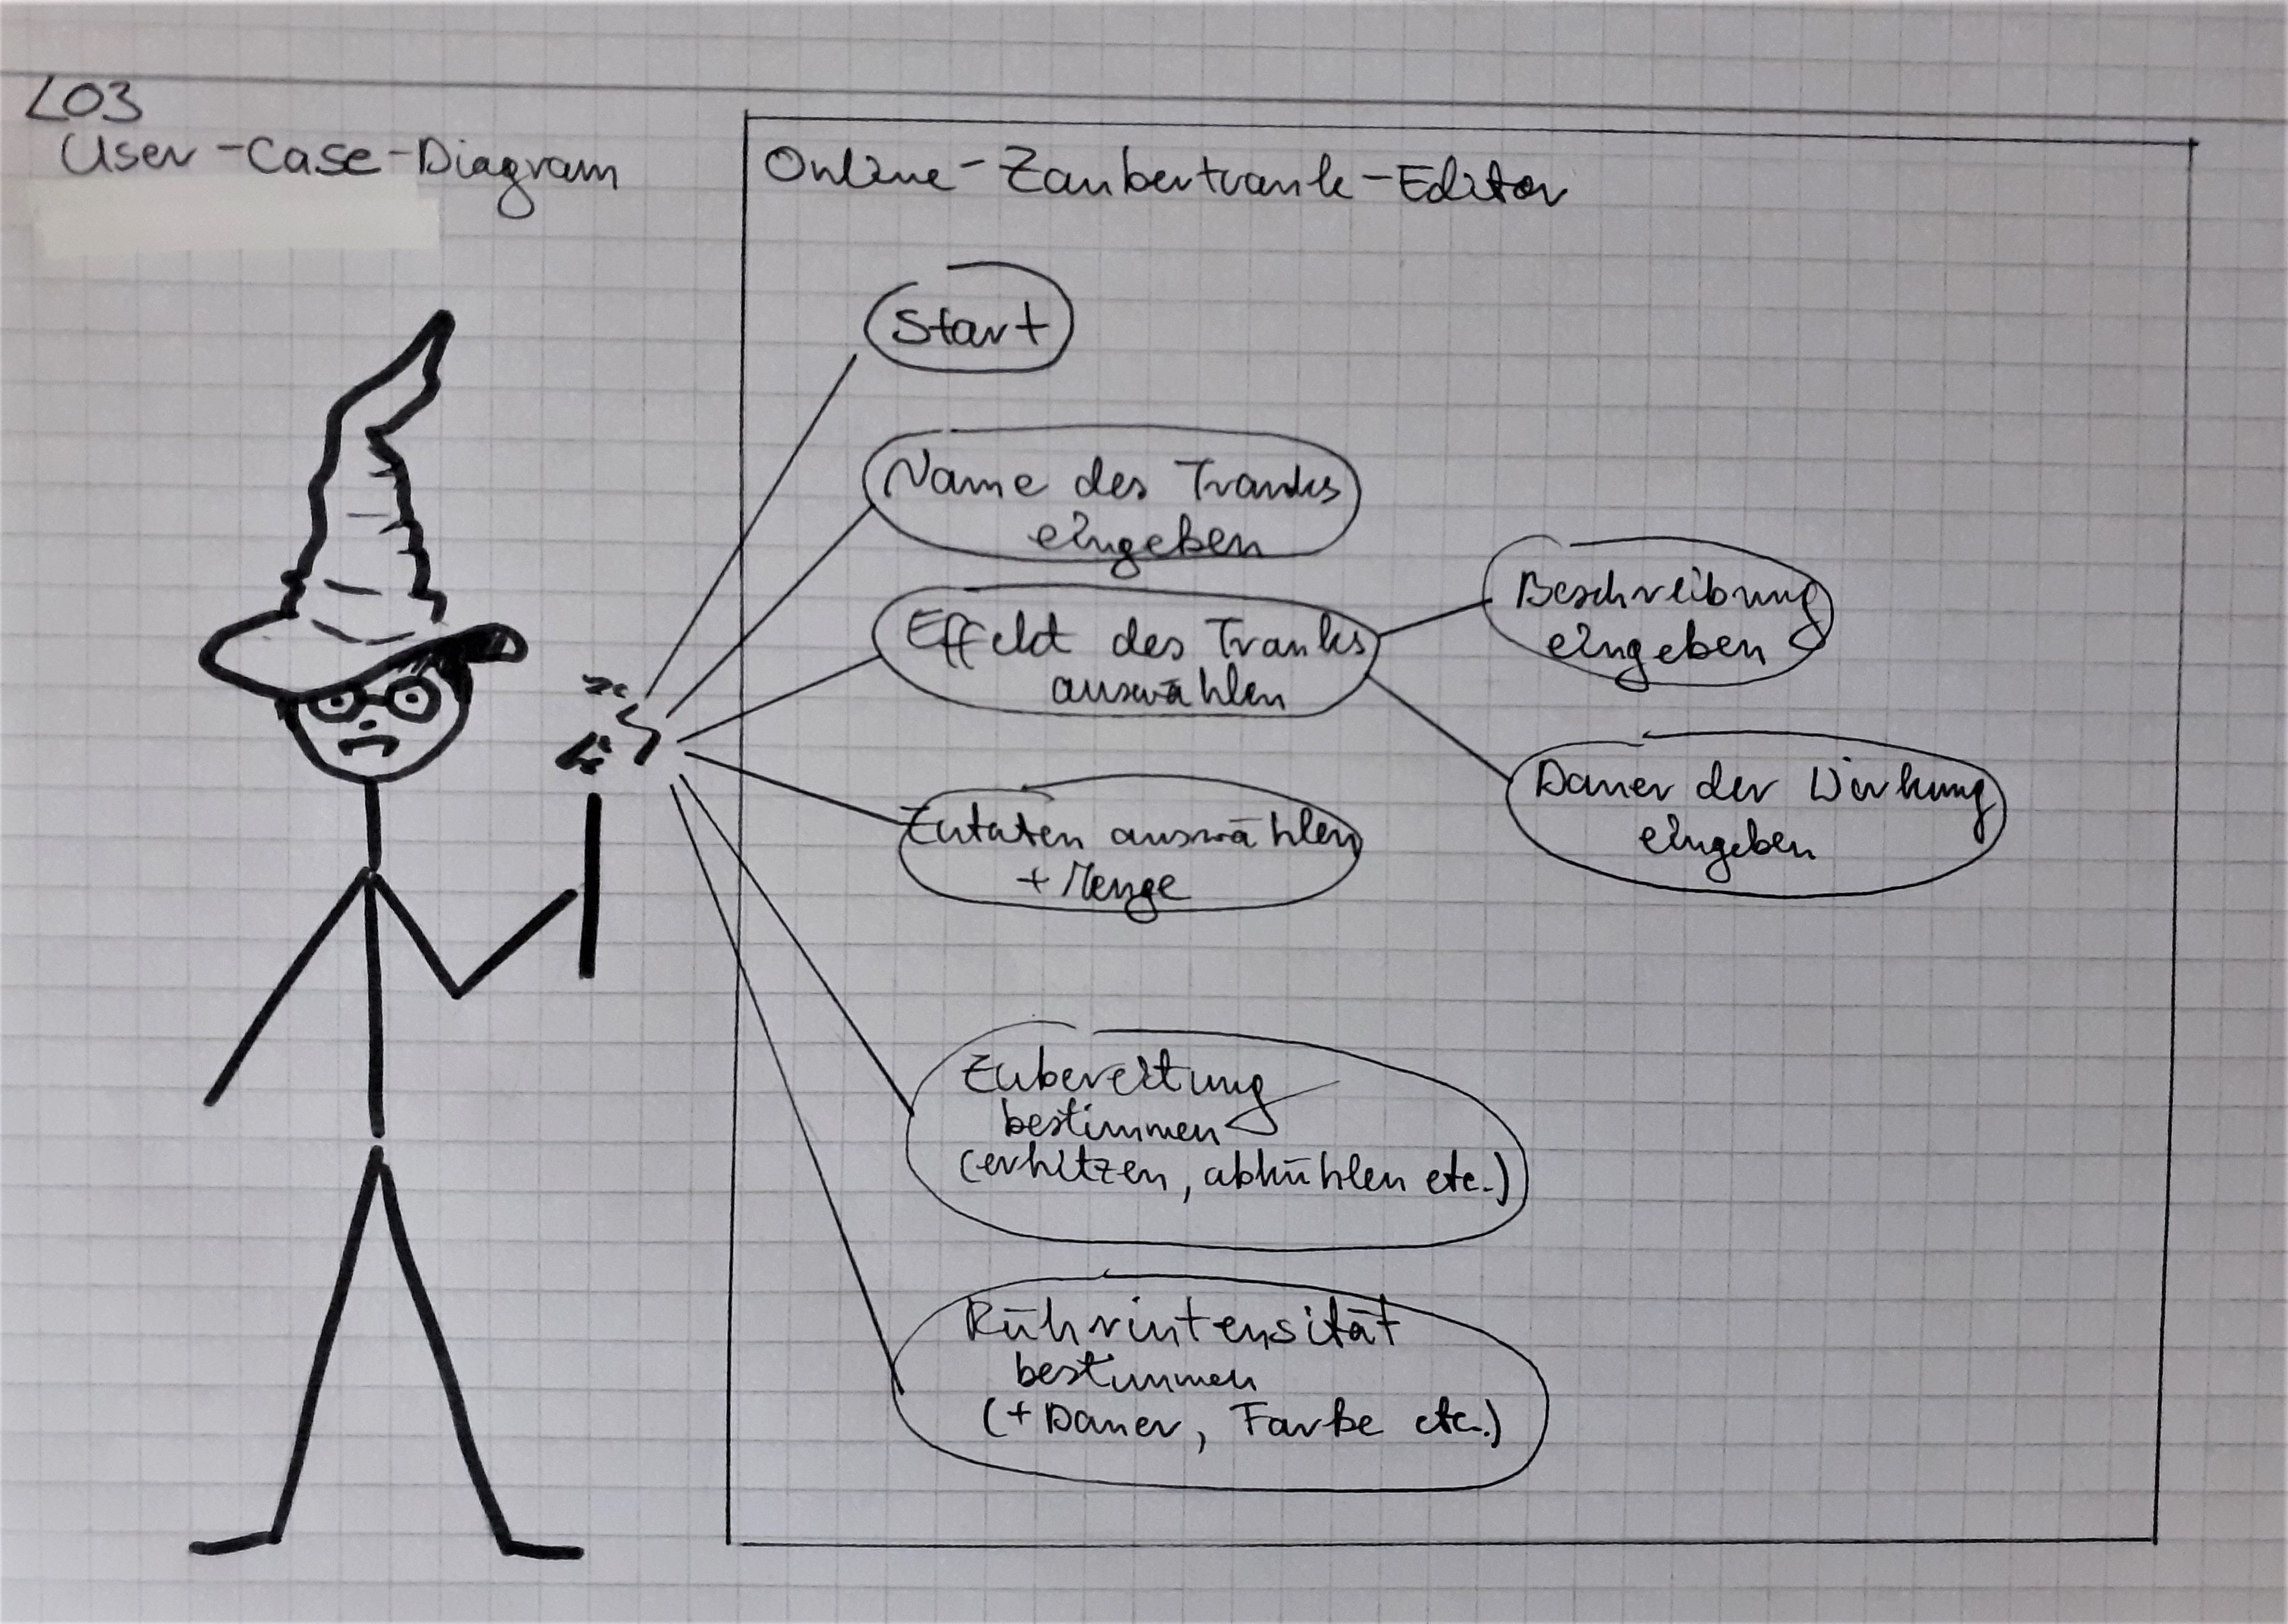 L03
User-Case-Diagram
Online-Zaubertrank-Editor
Start
Name des Tranks
eingeben
Effekt des Tranks
auswählen
Beschreibung
eingeben
Dauer der Wirkung
eingeben
Zutaten auswählen
+ Menge
Zubereitung
bestimmen
(erhitzen, abkühlen etc.)
Rührintensität
bestimmen
(+ Dauer, Farbe etc.)